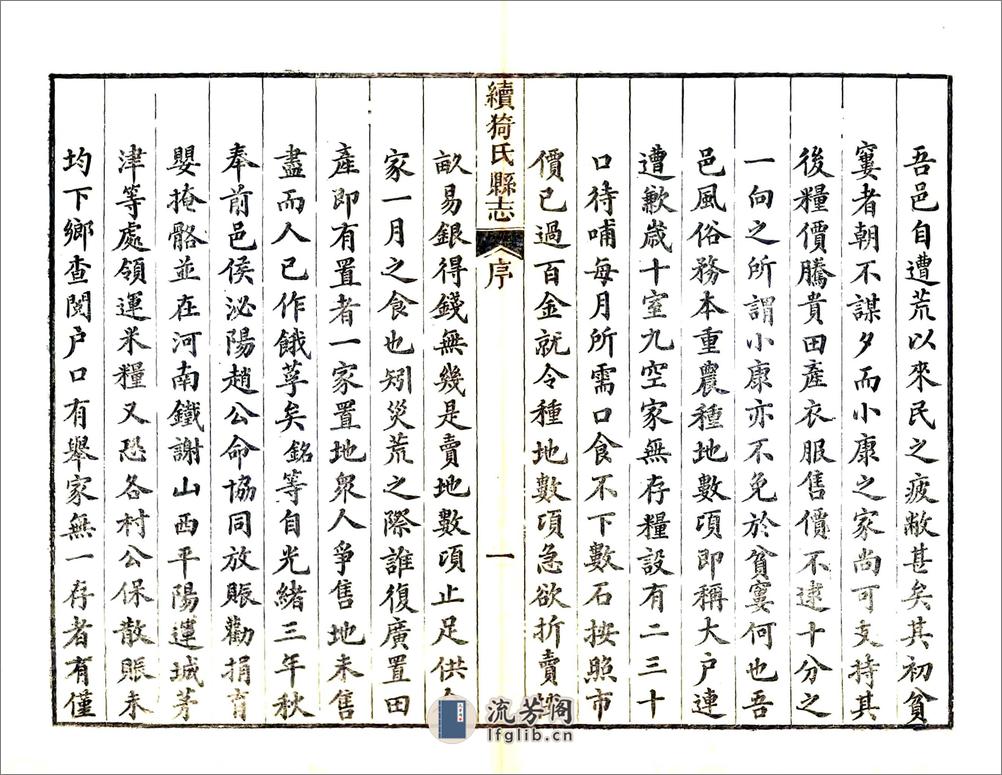 吾邑自遭荒以來民之疲敝甚矣其初貧
窶者朝不謀夕而小康之家尚可支持其
後糧價騰貴田產衣服售價不逮十分之
一向之所謂小康亦不免於貧窶何也吾
邑風俗務本重農種地數項即稱大户連
遭歉歲十室九空家無存糧設有二三十
口待哺每月所需口食不下數石按照市
價已過百金就令種地數項急欲折賣
續猗氏縣志
序
一
畝易銀得錢無幾是賣地數項止足供
家一月之食也矧災荒之際誰復廣置田
產即有置者一家置地衆人爭售地未售
盡而人已作餓莩矣銘等自光緒三年秋
奉前邑侯泌陽趙公命協同放賑勸捐育
嬰掩骼並在河南鐵謝山西平陽運城茅
津等處領運米糧又恐各村公保散賑未
均下鄉查閱户口有舉家無一存者有僅
流芳閣
lfglib.cn